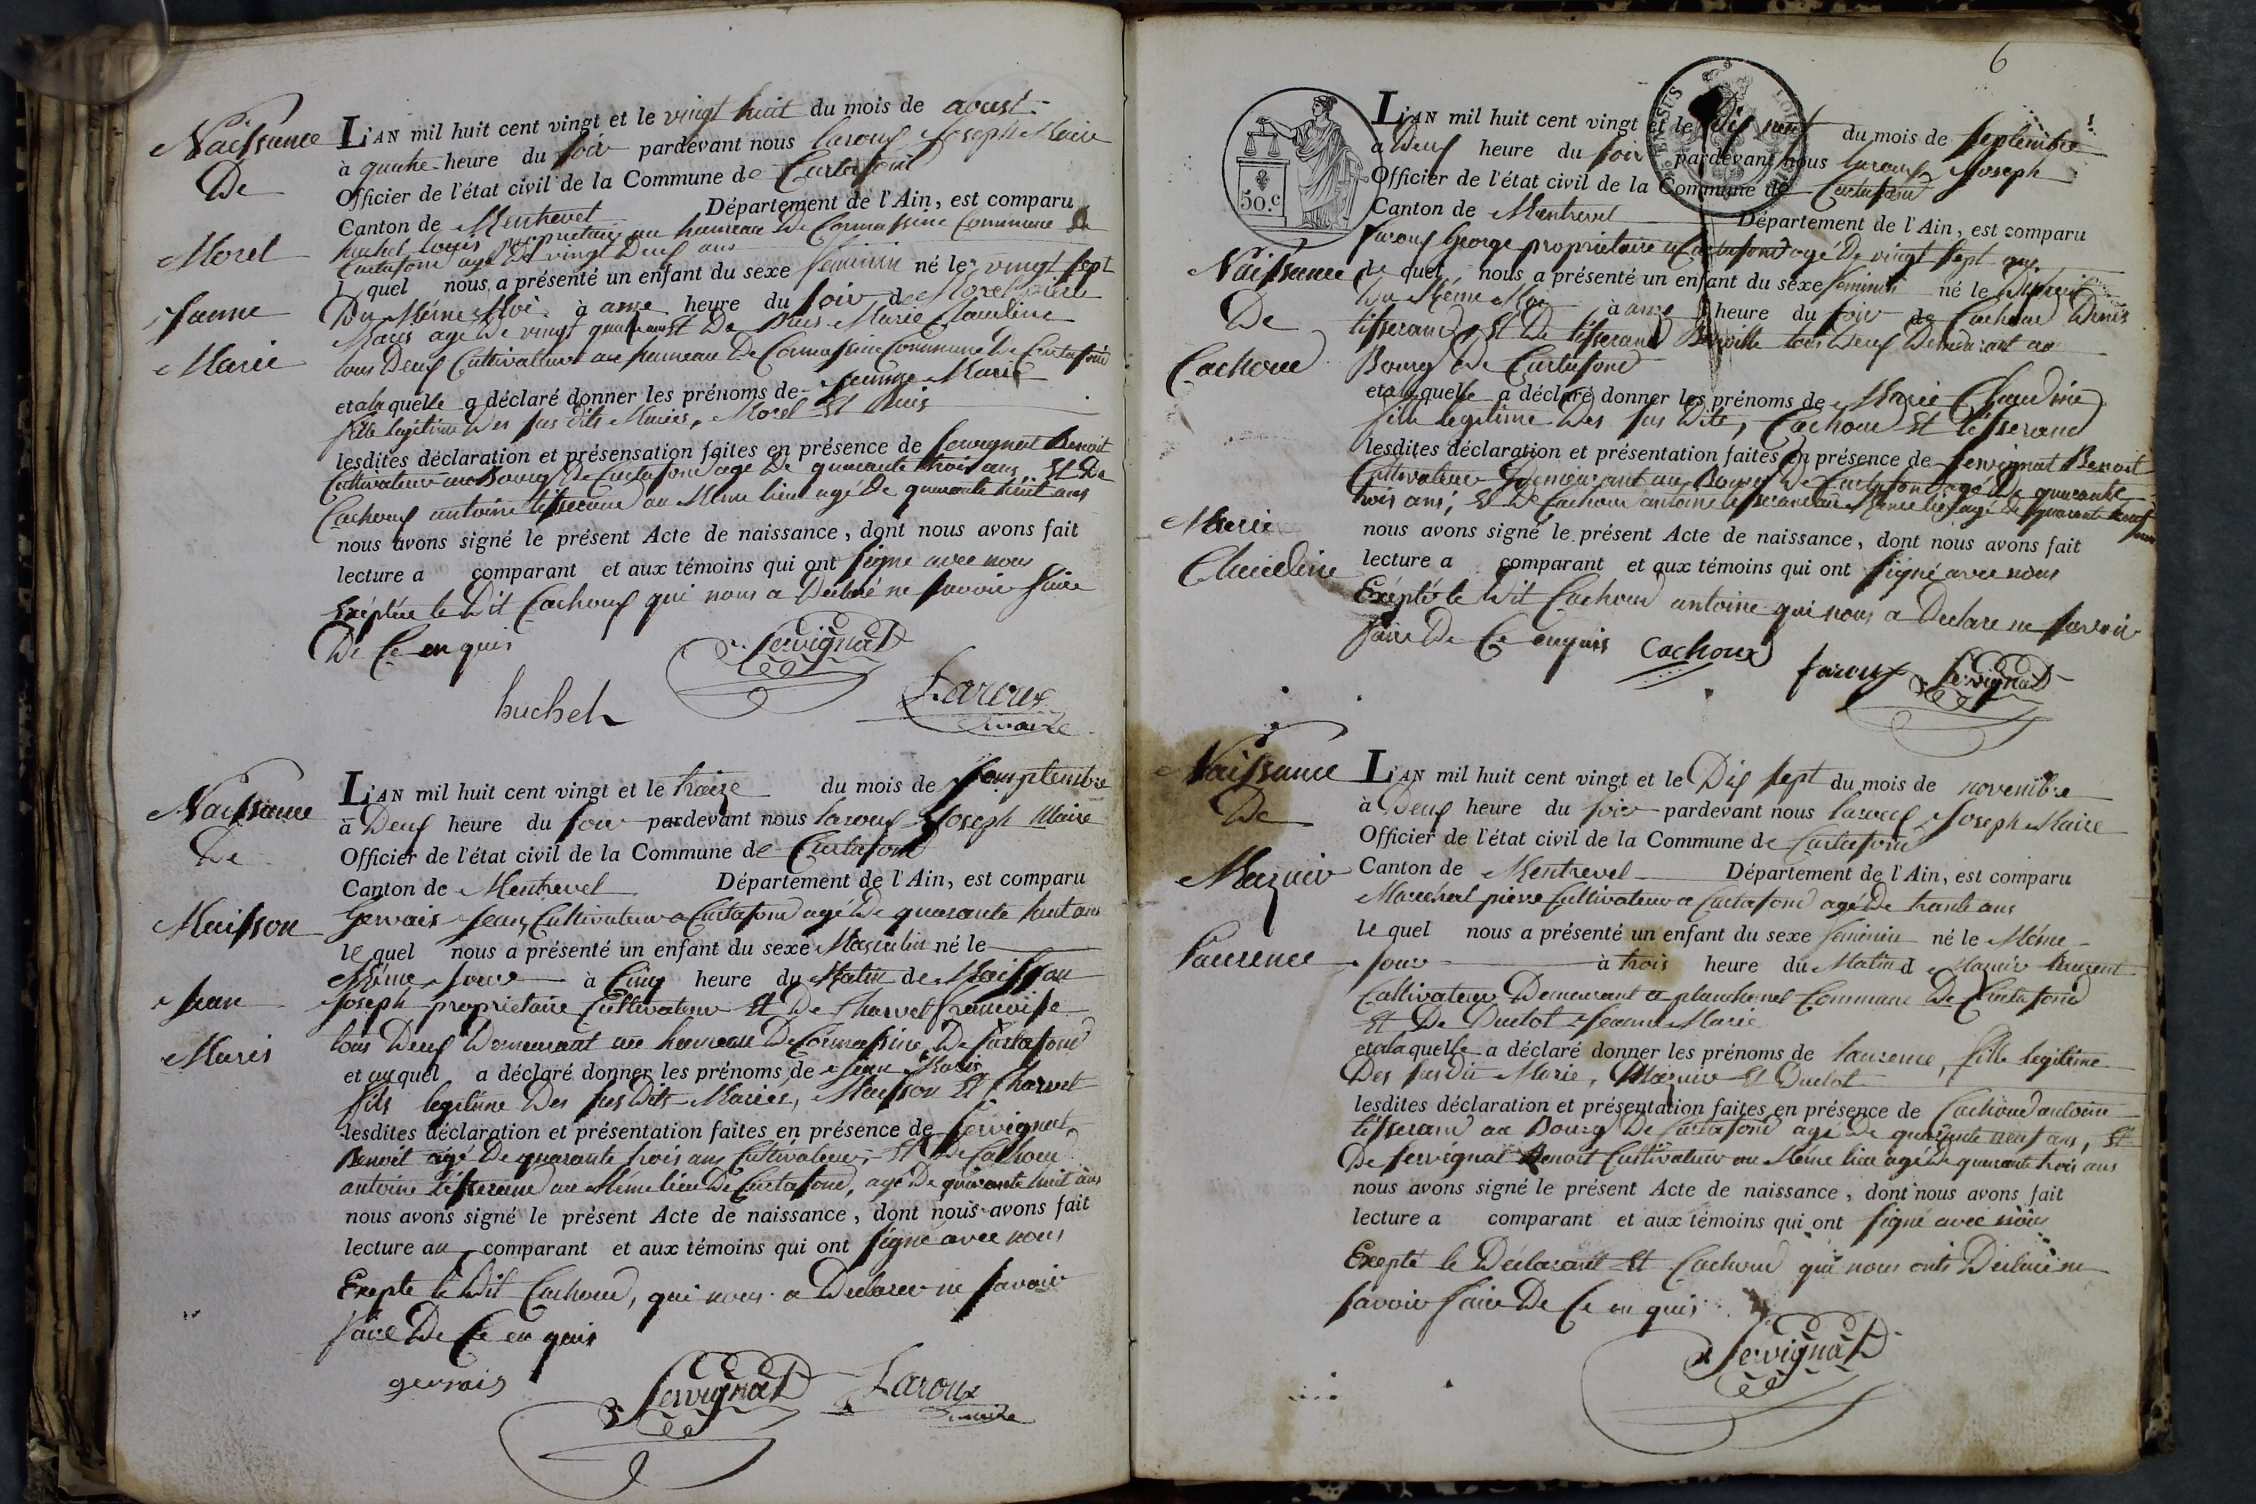 Naissance
De
Morel
Jeanne
Marie
L'AN mil huit cent vingt et le vingt huit du mois de aoust
à quatre heure du soir pardevant nous laroux Joseph Maire
Officier de l'état civil de la Commune de Curtafond
Canton de Montrevel Département de l'Ain, est comparu
huchet Louis proprietaire au hameau De Cormassine Commune De
Curtafond agé De vingt Deux ans
le quel nous a présenté un enfant du sexe feminin né le vingt sept
Du Même Moi à onze heure du soir de Morel
Maris agé De vingt quatre ans Et De Buis Marie Claudine
tous Deux Cultivateur au hameau De Cormassine Commune De Curtafond
et a la quelle a déclaré donner les prénoms de Jeanne Marie
fille legitime Des sus dits Mariés, Morel Et Buis
lesdites déclaration et présensation faites en présence de servignat Benoit
Cultivateur au Bourg De Curtafond agé De quarante trois ans Et De
Cachoux antoine tisserand au Même lieu agé De quarante huit ans
nous avons signé le présent Acte de naissance, dont nous avons fait
lecture a comparant et aux témoins qui ont signé avec nous
Exéptée le Dit Cachoux qui nous a Declaré ne savoir faire
De Ce en quis
Servignat
huchet
Laroux
maire
Naissance
De
Maisson
Jean
Maris
L'AN mil huit cent vingt et le traize du mois de semptembre
à Deux heure du soir pardevant nous laroux Joseph Maire
Officier de l'état civil de la Commune de Curtafond
Canton de Montrevel Département de l'Ain, est comparu
Gervais Jean Cultivateur a Curtafond agé De quarante huit ans
le quel nous a présenté un enfant du sexe Masculin né le
Même Jour à Cinq heure du Matin de Maisson
Joseph proprietaire Cultivateur Et De Charvet francoise
tous Deux Demeurant au hameau De Cormassine De Curtafond
et au quel a déclaré donner les prénoms de Jean Maris
fils legitime Des sus Dits Mariés, Maisson Et Charvet
lesdites déclaration et présentation faites en présence de servignat
Benoit agé De quarante trois ans Cultivateur, Et De Cachoux
antoine tisserand au Même lieu De Curtafond, agé De quarante huit ans
nous avons signé le présent Acte de naissance, dont nous avons fait
lecture au comparant et aux témoins qui ont signé avec nous
Exepte le Dit Cachoud, qui nous a Declarer ne savoir
faire De Ce en quis
gervais
Servignat
Laroux
maire
6
50.c
Naissance
De
Cachoud
Marie
Claudine
L'AN mil huit cent vingt et le Dix neuf du mois de septembre
à Deux heure du soir pardevant nous laroux Joseph
Officier de l'état civil de la Commune de Curtafond
Canton de Montrevel Département de l'Ain, est comparu
faroux George proprietaire a Curtafond agé De vingt sept ans
le quel nous a présenté un enfant du sexe feminin né le
Du Même Moi à onze heure du soir de Cachoud Denis
tisserand, Et De tisserand tous Deux Demeurant au
Bourg De Curtafond
et a laquelle a déclaré donner les prénoms de Marie Claudine
fille legitime Des sus Dits, Cachoud Et tisserand
lesdites déclaration et présentation faites en présence de servignat Benoit
Cultivateur Demeurant au Bourg De Curtafond agé De quarante
trois ans, Et De Cachoux antoine tisserand au Même lieu agé De quarante neuf
ans
nous avons signé le présent Acte de naissance, dont nous avons fait
lecture a comparant et aux témoins qui ont signé avec nous
Exépté le Dit Cachoud antoine qui nous a Declare ne savoir
faire De Ce enquis
Cachoux
faroux
Servignat
Naissance
De
Mazuir
Laurence
L'AN mil huit cent vingt et le Dix sept du mois de novembre
à Deux heure du soir pardevant nous laroux Joseph Maire
Officier de l'état civil de la Commune de Curtafond
Canton de Montrevel Département de l'Ain, est comparu
Marechal pierre Cultivateur a Curtafond agé De trante ans
le quel nous a présenté un enfant du sexe feminin né le Même
Jour à trois heure du Matin d Mazuir
Cultivateur Demeurant a planchonel Commune De Curtafond
Et De Ductot Jeanne Marie
et a la quelle a déclaré donner les prénoms de laurence, fille legitime
Des sus Dit Marie, Mazuir Et Ductot
lesdites déclaration et présentation faites en présence de Cachoud antoine
tisserand au Bourg De Curtafond agé De quarante neuf ans, Et
De servignat Benoit Cultivateur au Même lieu agé De quarante trois ans
nous avons signé le présent Acte de naissance, dont nous avons fait
lecture a comparant et aux témoins qui ont signé avec nous
Exepté le Déclarant Et Cachoud qui nous onts Declaré ne
savoir faire De Ce en quis
Servignat